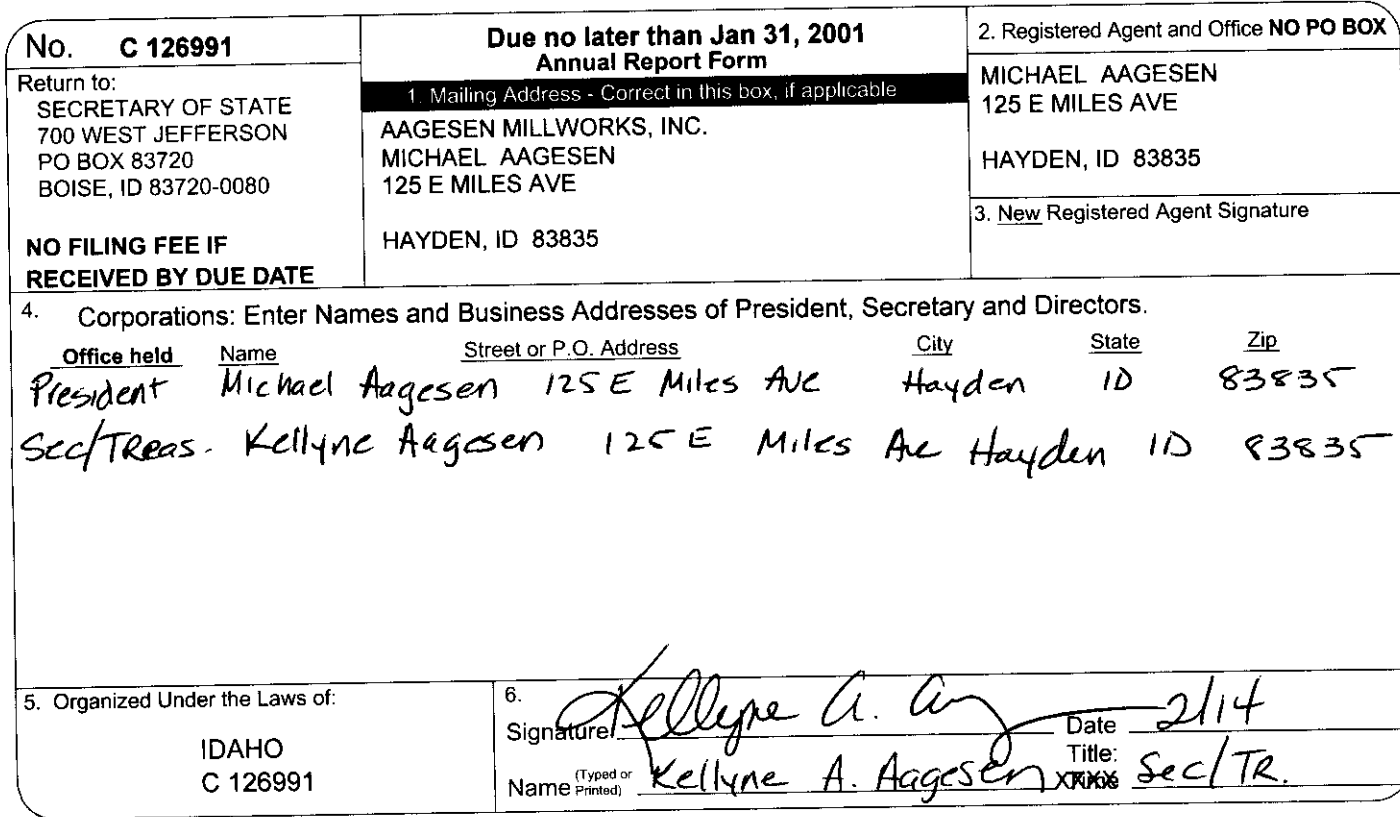 No. C 126991
Return to:
SECRETARY OF STATE
700 WEST JEFFERSON
PO BOX 83720
BOISE, ID 83720-0080
NO FILING FEE IF
RECEIVED BY DUE DATE
Due no later than Jan 31, 2001
Annual Report Form
1. Mailing Address - Correct in this box, if applicable
AAGESEN MILLWORKS, INC.
MICHAEL AAGESEN
125 E MILES AVE
HAYDEN, ID 83835
2. Registered Agent and Office NO PO BOX
MICHAEL AAGESEN
125 E MILES AVE
HAYDEN, ID 83835
3. New Registered Agent Signature
4. Corporations: Enter Names and Business Addresses of President, Secretary and Directors.
Office held Name Street or P.O. Address City State Zip
President Michael Aagesen 125 E Miles Ave Hayden ID 83835
Sec/Treas. Kellyne Aagesen 125 E Miles Ave Hayden ID 83835
5. Organized Under the Laws of:
IDAHO
C 126991
6.
Signature Kellyne A. Date 2/14
Name (Typed or Printed) Kellyne A. Aagesen Title: Sec/TR.